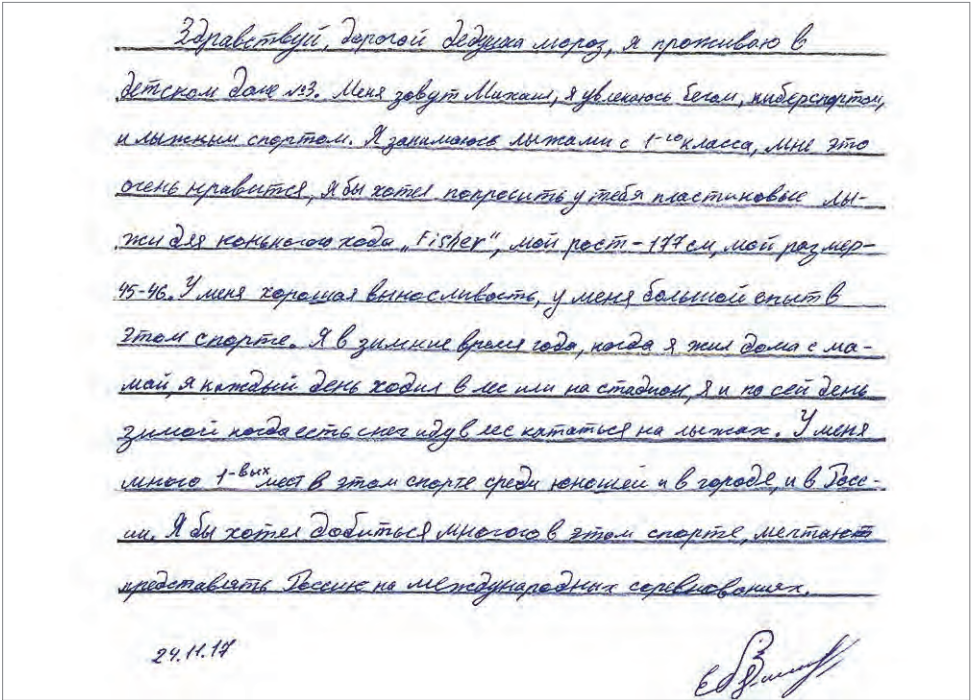 Здравствуй, дорогой дедушка мороз, я проживаю в
детском доме №3. Меня зовут Михаил, я увлекаюсь бегом, киберспортом,
и лыжным спортом. Я занимаюсь лыжами с 1-го класса, мне это
очень нравится, я бы хотел попросить у тебя пластиковые лы-
жи для конького хода „Fisher", мой рост - 177 см, мой размер-
45-46. У меня хорошая выносливость, у меня большой опыт в
этом спорте. Я в зимние время года, когда я жил дома с ма-
мой, я каждый день ходил в лес или на стадион, я и по сей день
зимой когда есть снег иду в лес кататься на лыжах. У меня
много 1-вых мест в этом спорте среди юношей и в городе, и в Росс-
ии. Я бы хотел добиться многого в этом спорте, мечтаю
представлять Россию на международных соревнованиях.
24.11.17